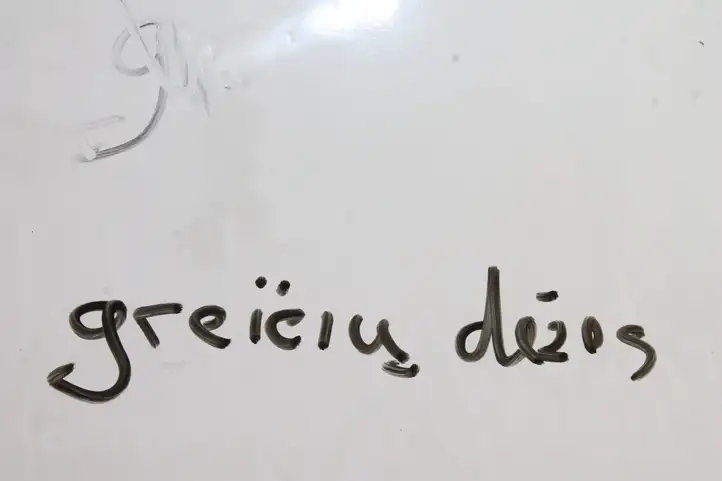 greičių dėžės